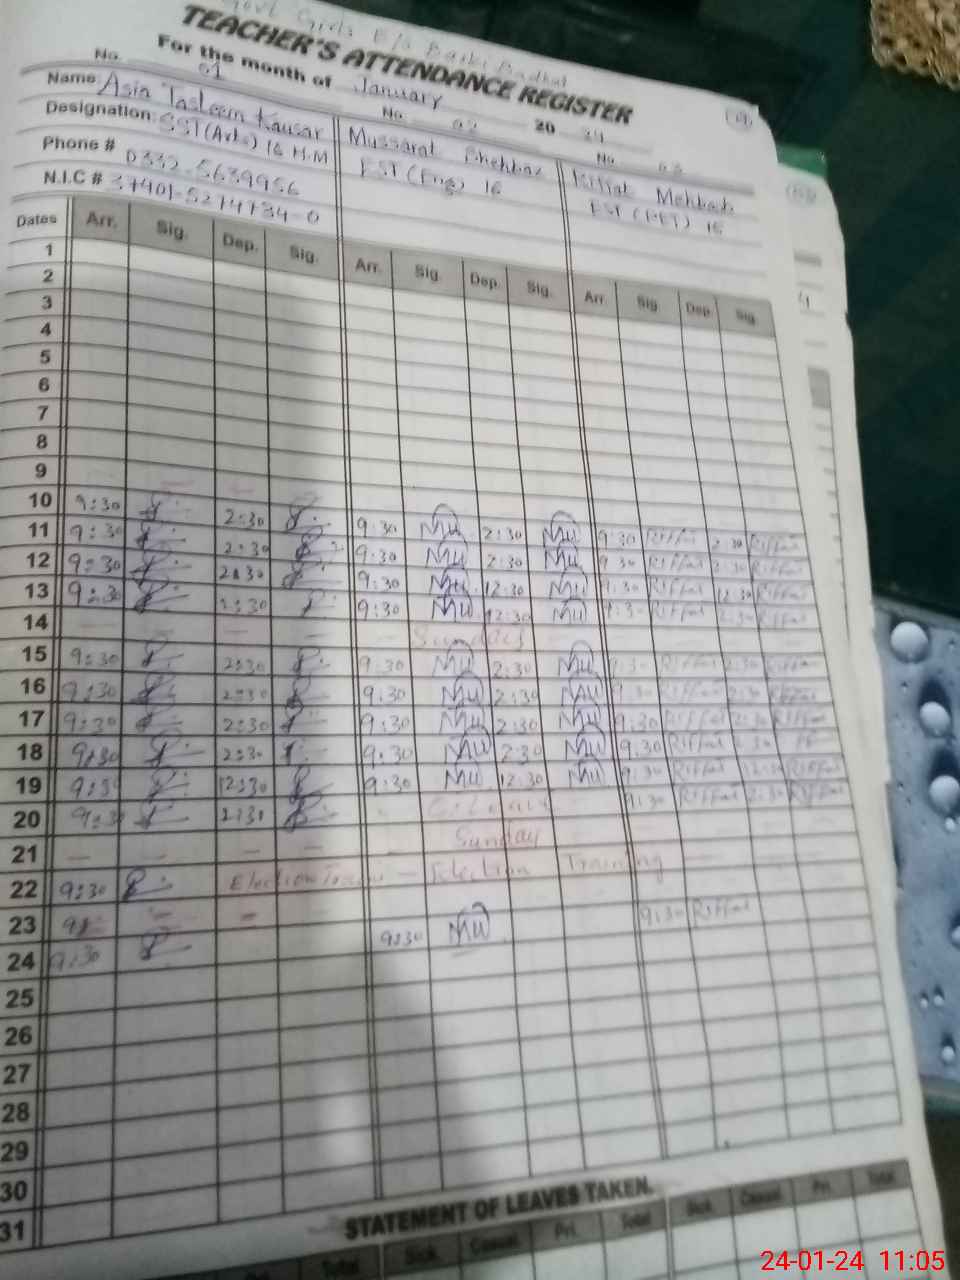 Govt Girls E/S
TEACHER'S ATTENDANCE REGISTER
For the month of January 20 24
No. 01 No. 02 No. 03
Name: Asia Tasleem Kausar Mussarat
Designation: SST (Arts) 16 H.M EST (Eng) 16 EST 16
Phone # 0332-5639956
N.I.C # 37401-5274784-0
Dates Arr. Sig. Dep. Sig. Arr. Sig. Dep. Sig. Arr Sig. Dep. Sig.
1
2
3
4
5
6
7
8
9
10 9:30 2:30 9:30 Mu 2:30 Mu 9:30 Riffat 2:30 Riffat
11 9:30 2:30 9:30 Mu 2:30 Mu 9:30 Riffat 2:30 Riffat
12 9:30 2:30 9:30 Mu 12:30 Mu 9:30 Riffat 12:30 Riffat
13 9:30 2:30 9:30 Mu 12:30 Mu 9:30 Riffat 2:30 Riffat
14 Sunday
15 9:30 2:30 9:30 Mu 2:30 Mu 9:30 Riffat 2:30 Riffat
16 9:30 2:30 9:30 Mu 2:30 Mu 9:30 Riffat 2:30 Riffat
17 9:30 2:30 9:30 Mu 2:30 Mu 9:30 Riffat 2:30 Riffat
18 9:30 2:30 9:30 Mu 2:30 Mu 9:30 Riffat 2:30
19 9:30 12:30 9:30 Mu 12:30 Mu 9:30 Riffat 12:30 Riffat
20 9:30 2:30 C. Leave 9:30 Riffat 2:30 Riffat
21 Sunday
22 9:30 Election Election Training
23
24 9:30 9:30 Mu 9:30 Riffat
25
26
27
28
29
30
31
STATEMENT OF LEAVES TAKEN.
Total Sick Casual Pri. Total Sick Casual Pri. Total
24-01-24 11:05